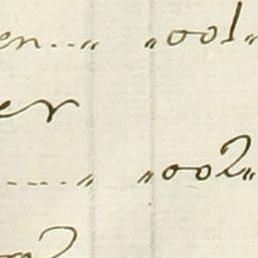 en..„ „001„
er
....„ „002„